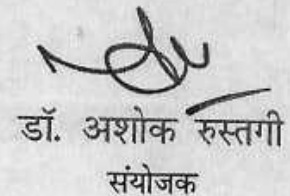 डॉ. अशोक रुस्तगी
संयोजक